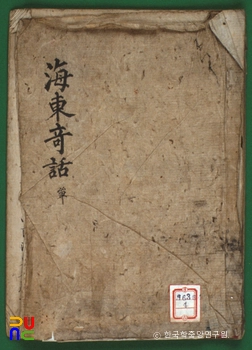 海東奇話
單
© 한국학중앙연구원